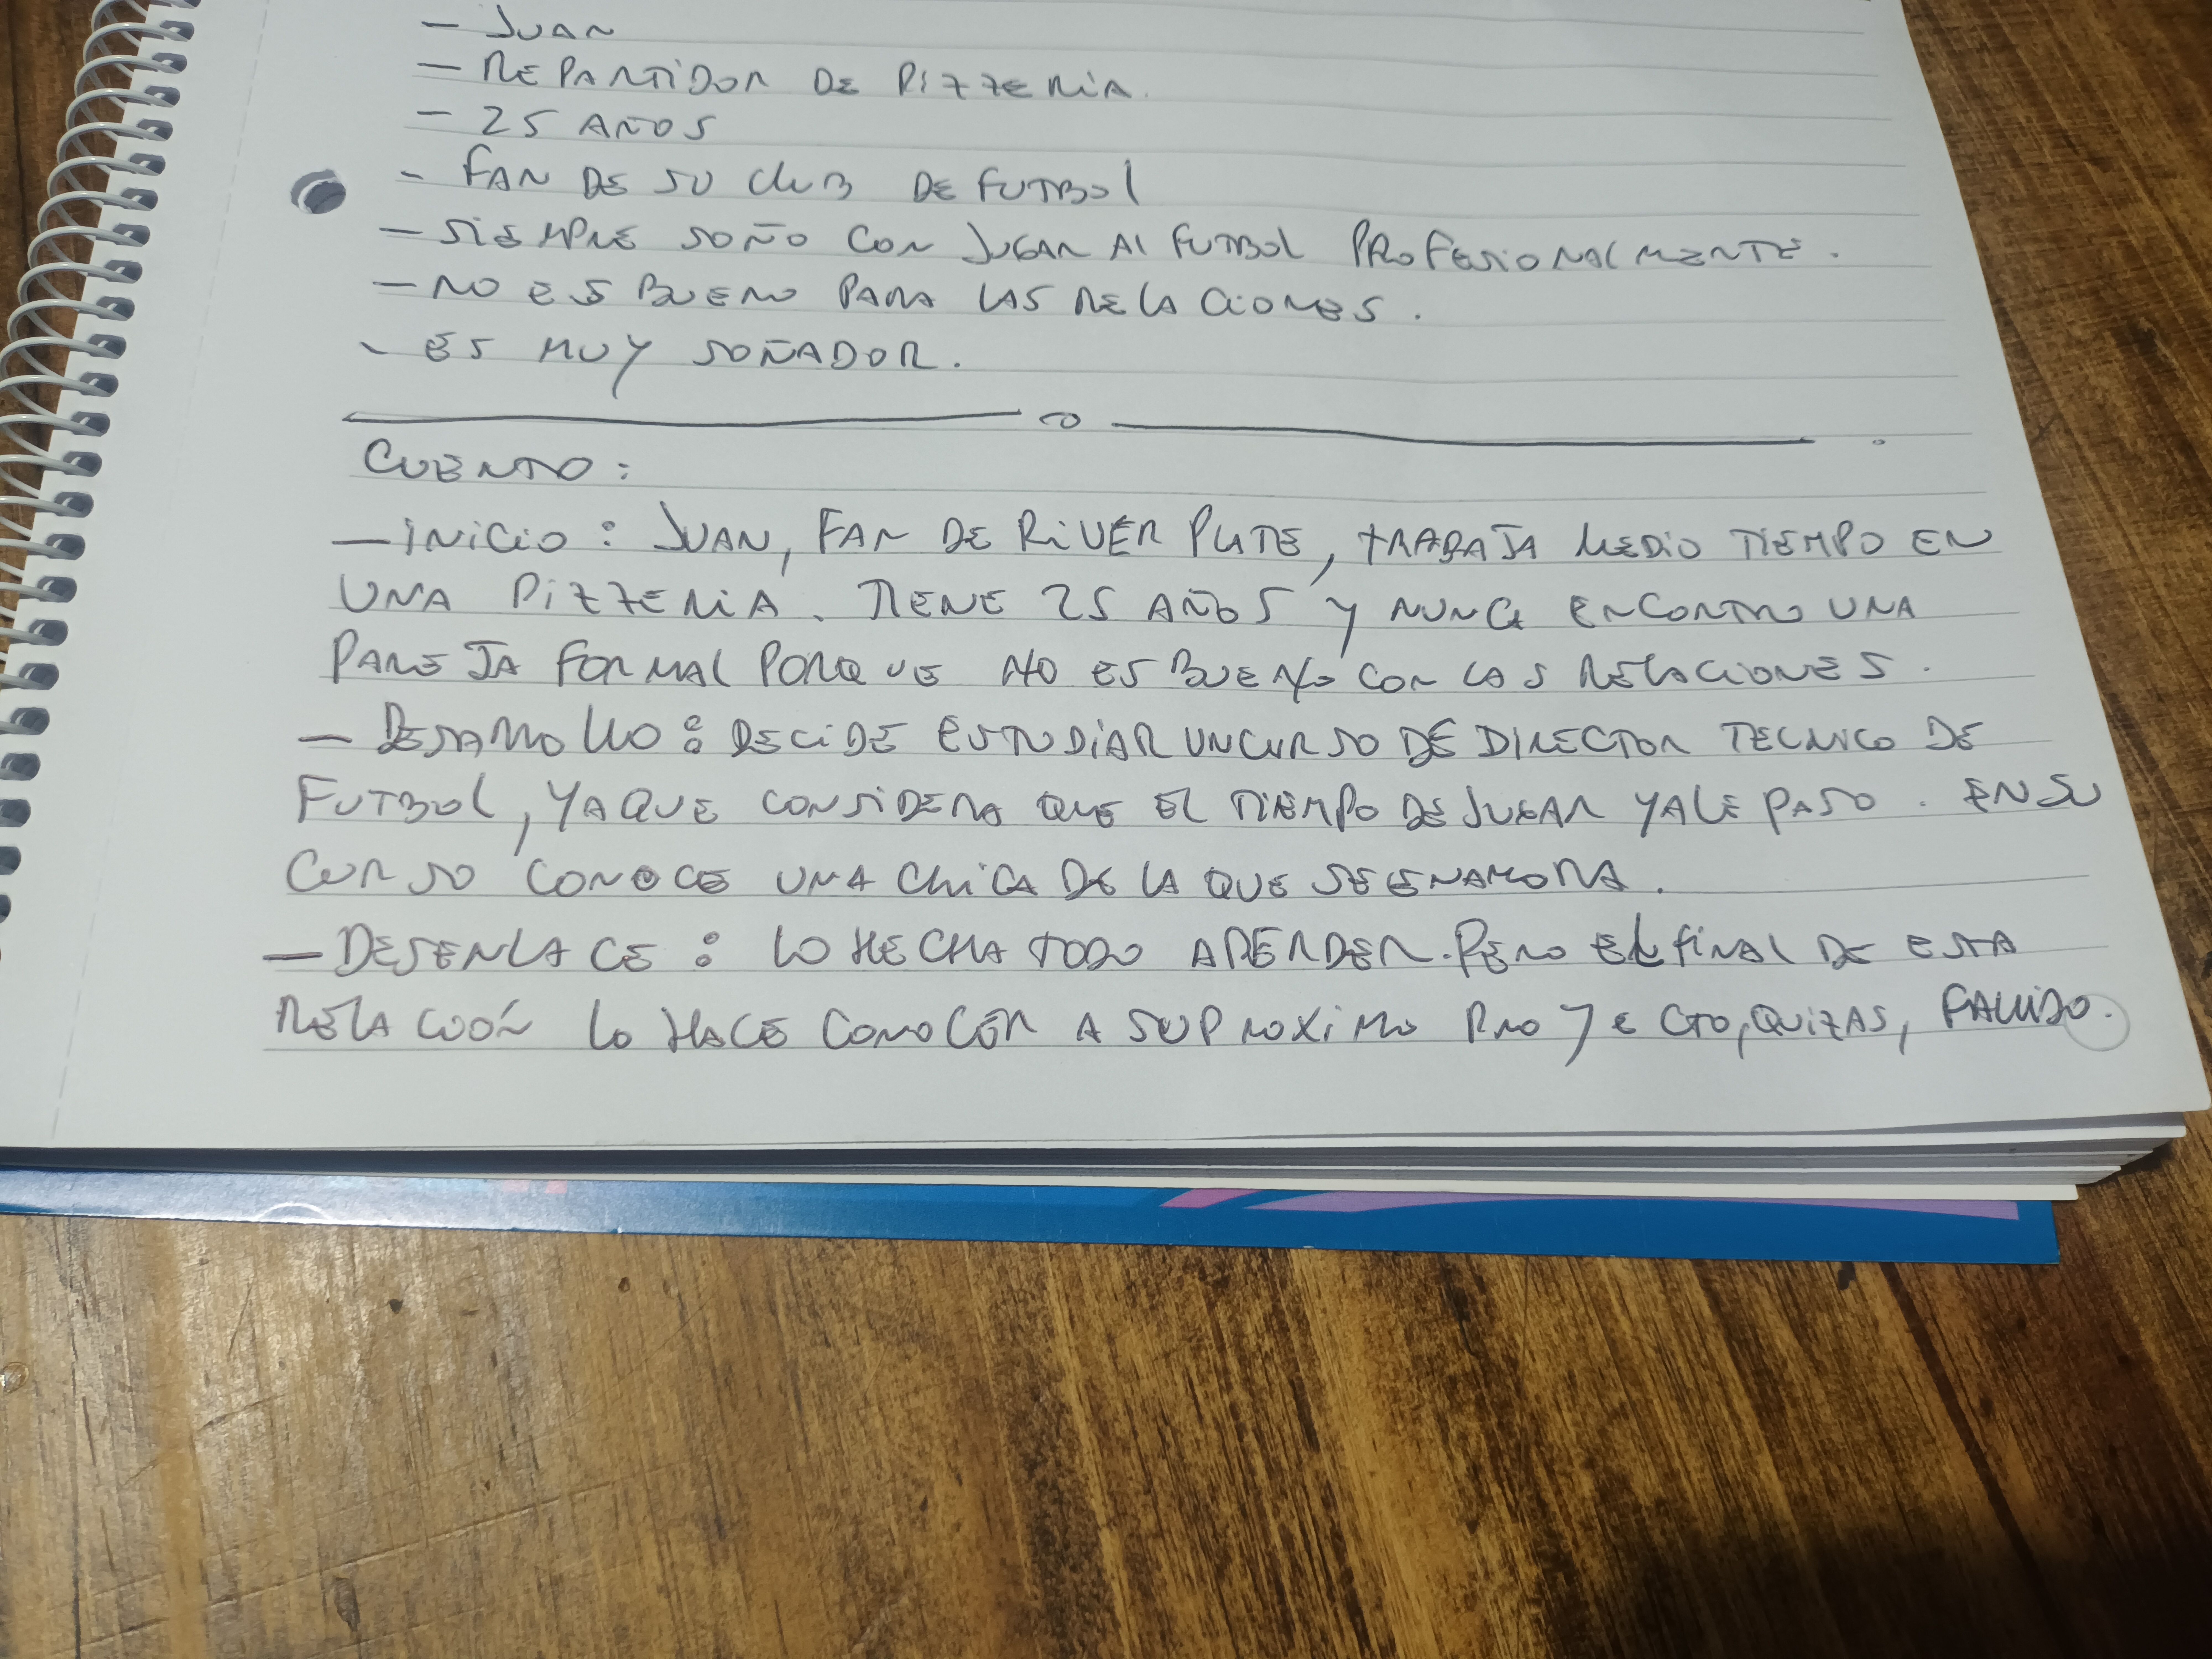 - JUAN
- REPARTIDOR DE PIZZERIA.
- 25 AÑOS
- FAN DE SU CLUB DE FUTBOL
- SIEMPRE SOÑO CON JUGAR AL FUTBOL PROFESIONALMENTE.
- NO ES BUENO PARA LAS RELACIONES.
- ES MUY SOÑADOR.
CUENTO:
- INICIO: JUAN, FAN DE RIVER PLATE, TRABAJA MEDIO TIEMPO EN
UNA PIZZERIA. TIENE 25 AÑOS Y NUNCA ENCONTRO UNA
PAREJA FORMAL PORQUE NO ES BUENO CON LAS RELACIONES.
- DESARROLLO: DECIDE ESTUDIAR UN CURSO DE DIRECTOR TECNICO DE
FUTBOL, YA QUE CONSIDERA QUE EL TIEMPO DE JUGAR YA LE PASO. EN SU
CURSO CONOCE UNA CHICA DE LA QUE SE ENAMORA.
- DESENLACE: LO HECHA TODO A PERDER. PERO EL FINAL DE ESTA
RELACIÓN LO HACE CONOCER A SU PROXIMO PROYECTO, QUIZAS, FALLIDO.